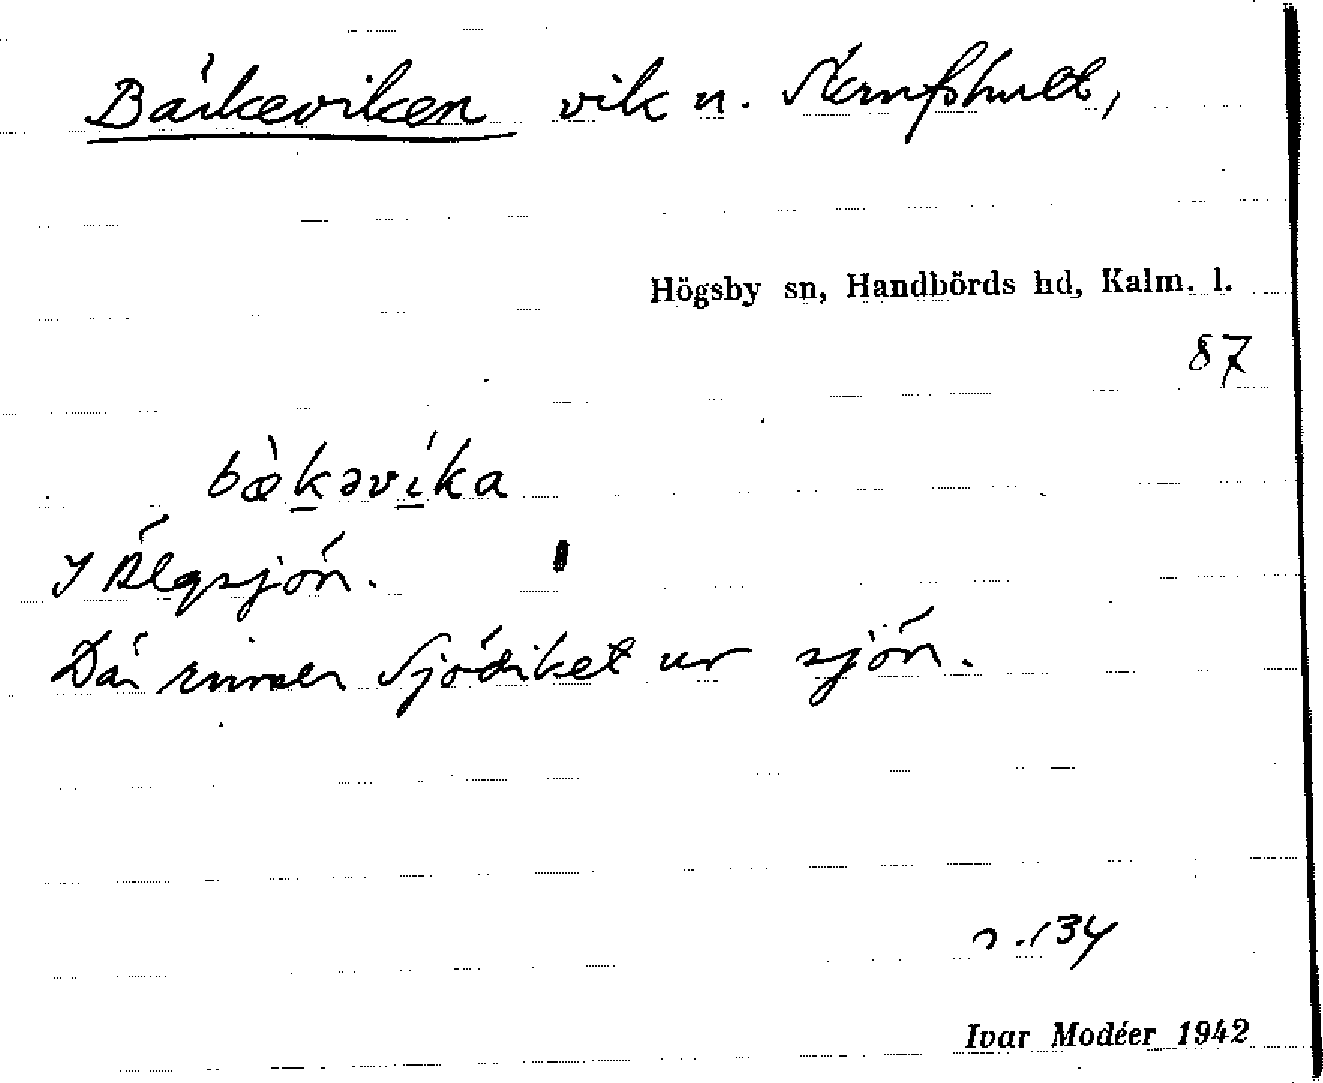 Bäckeviken vik n. Kampshult,
Högsby sn, Handbörds hd, Kalm. l.
87
bæ̀kəvíka
I Älgsjön.
Där rinner Sjödiket ur sjön.
34
Ivar Modéer 1942